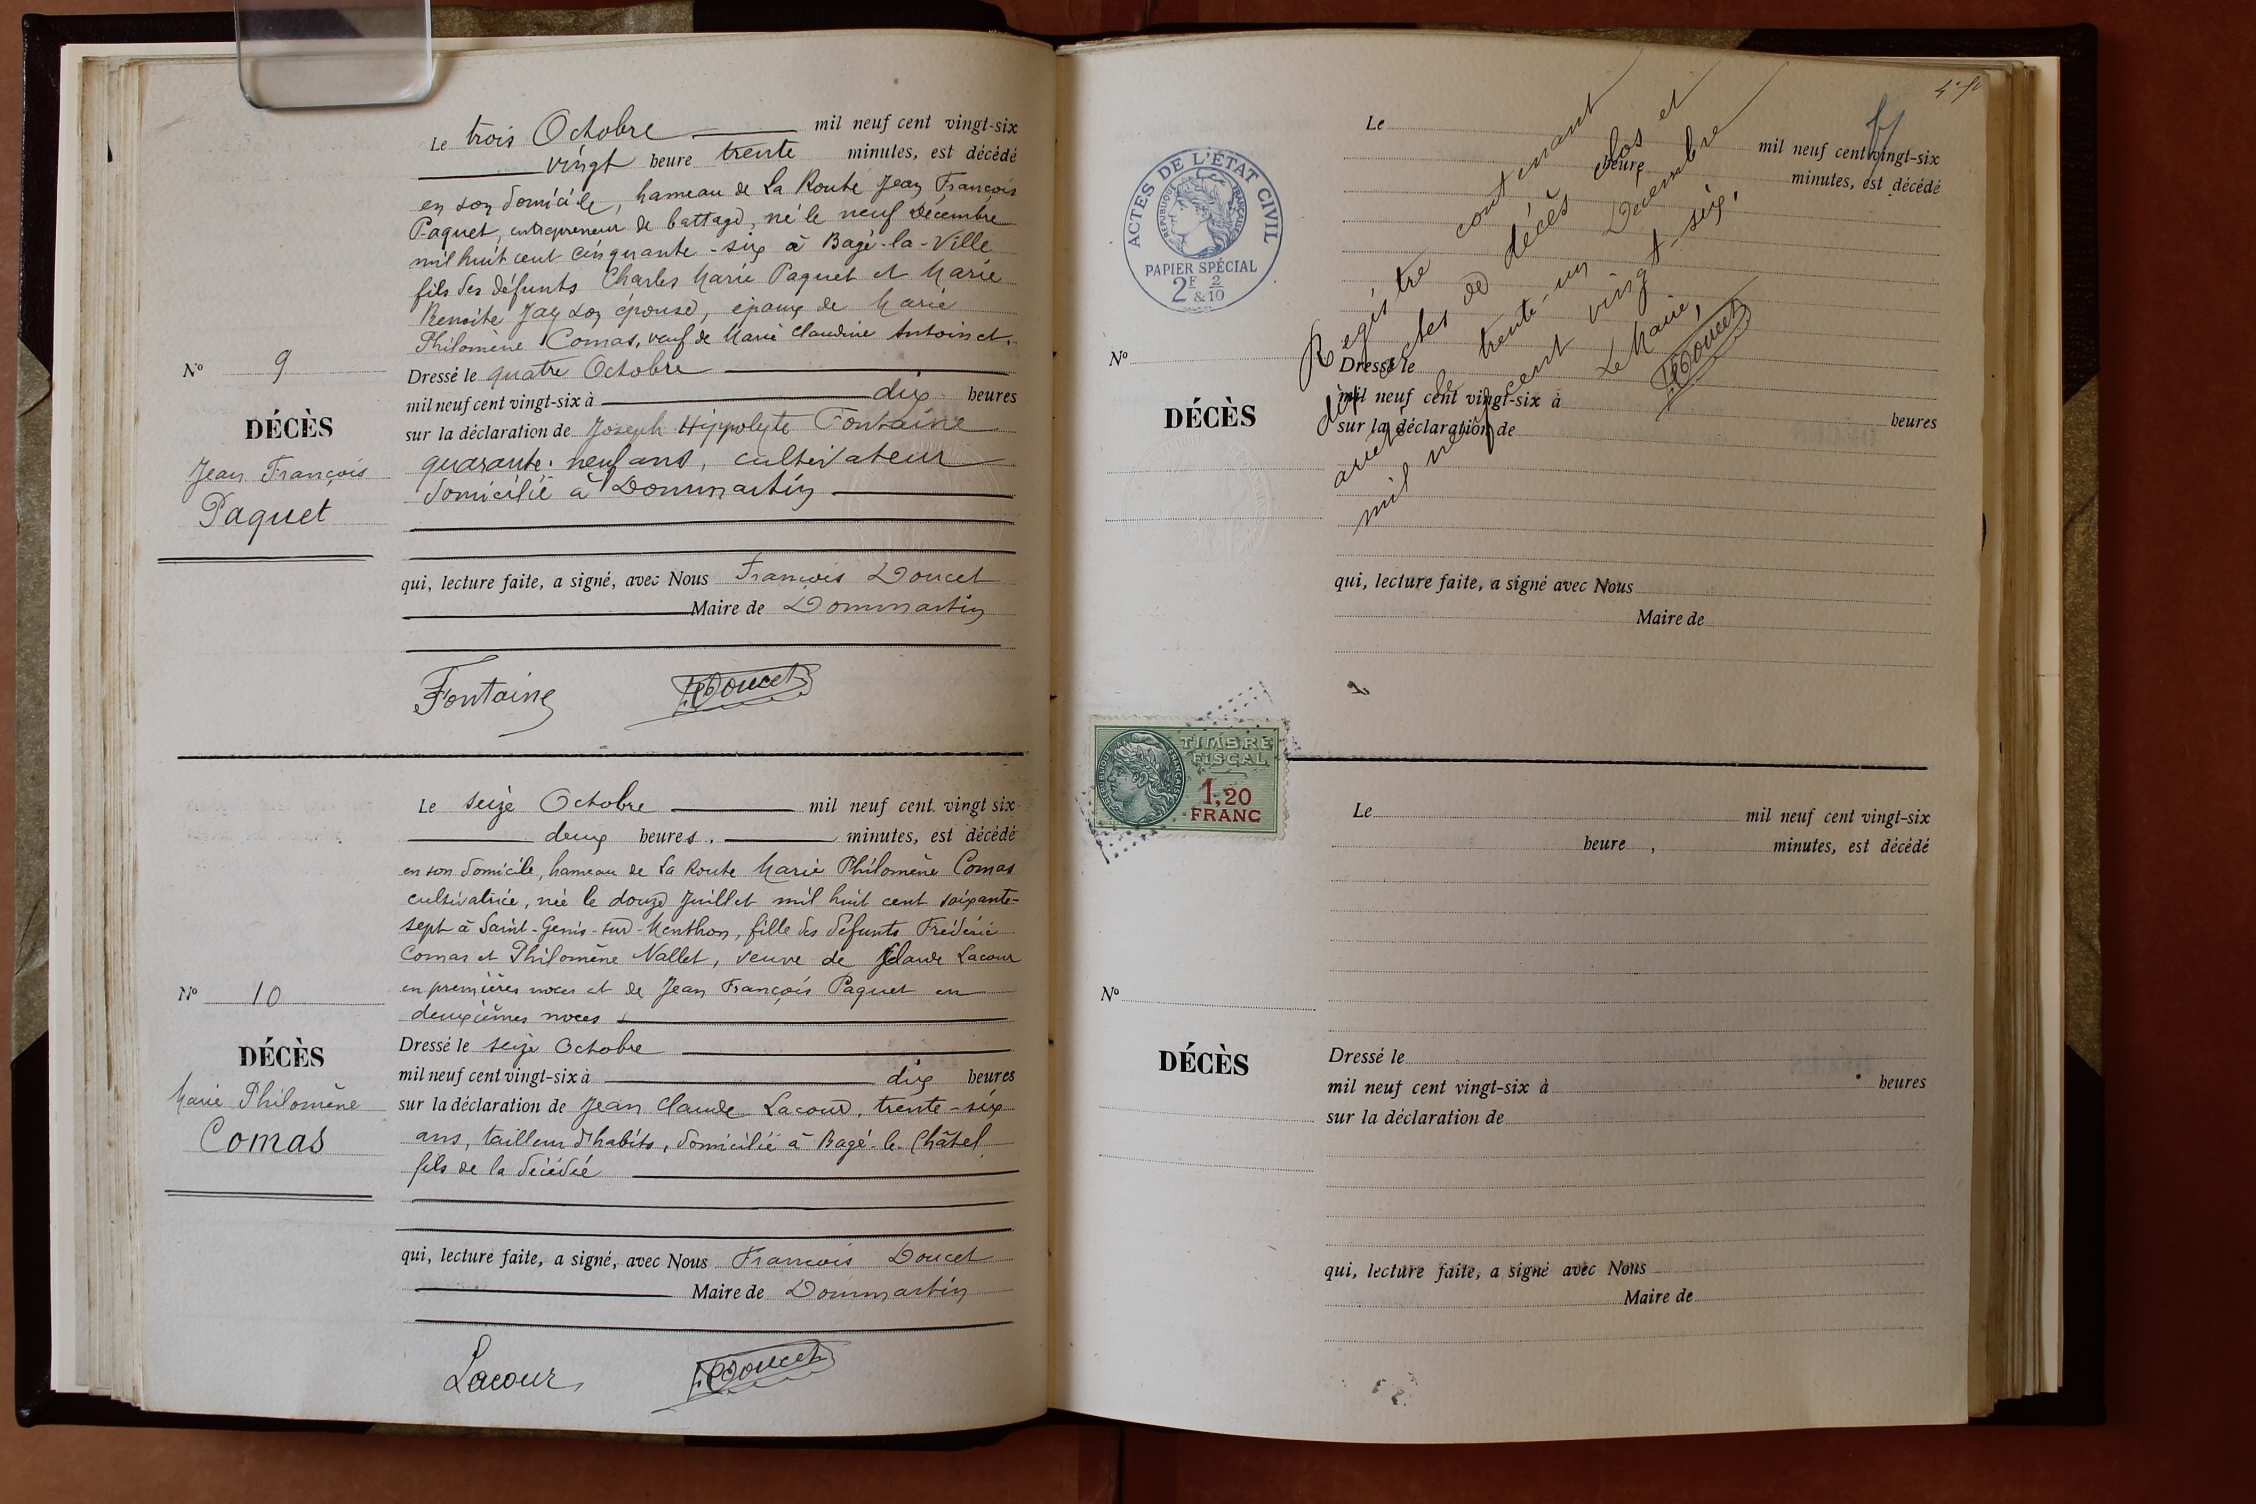 Le trois Octobre mil neuf cent vingt-six
vingt heure trente minutes, est décédé
en son domicile, hameau de La Route Jean François
Paquet, entrepreneur de battage, né le neuf Décembre
mil huit cent cinquante-six à Bagé-la-Ville
fils des défunts Charles Marie Paquet et Marie
Benoite Jay son épouse, époux de Marie
Philomène Comas, veuf de Marie Claudine Antoinet.
Nº 9
DÉCÈS
Jean François
Paquet
Dressé le quatre Octobre
mil neuf cent vingt-six à dix heures
sur la déclaration de Joseph Hippolyte Fontaine
quarante-neuf ans, cultivateur
domicilié à Dommartin
qui, lecture faite, a signé, avec Nous François Doucet
Maire de Dommartin
Fontaine F. Doucet
Le seize Octobre mil neuf cent vingt six
deux heures, minutes, est décédé
en son domicile, hameau de La Route Marie Philomène Comas
cultivatrice, née le douze Juillet mil huit cent soixante-
sept à Saint-Genis-sur-Menthon, fille des défunts Frédéric
Comas et Philomène Nallet, veuve de Claude Lacour
en premières noces et de Jean François Paquet en
deuxièmes noces
Nº 10
DÉCÈS
Marie Philomène
Comas
Dressé le seize Octobre
mil neuf cent vingt-six à dix heures
sur la déclaration de Jean Claude Lacour, trente-six
ans, tailleur d'habits, domicilié à Bagé-le-Châtel
fils de la décédée
qui, lecture faite, a signé, avec Nous François Doucet
Maire de Dommartin
Lacour F. Doucet
ACTES DE L'ÉTAT CIVIL
RÉPUBLIQUE FRANÇAISE
PAPIER SPÉCIAL
2F 2
& 10
Le mil neuf cent vingt-six
heure minutes, est décédé
Registre contenant
dix actes de décès clos et
arrêté le trente-un Décembre
mil neuf cent vingt-six.
Le Maire,
F. Doucet
Nº
DÉCÈS
Dressé le
mil neuf cent vingt-six à heures
sur la déclaration de
qui, lecture faite, a signé avec Nous
Maire de
RÉPUBLIQUE FRANÇAISE
TIMBRE
FISCAL
1,20
FRANC
Le mil neuf cent vingt-six
heure , minutes, est décédé
Nº
DÉCÈS
Dressé le
mil neuf cent vingt-six à heures
sur la déclaration de
qui, lecture faite, a signé avec Nous
Maire de